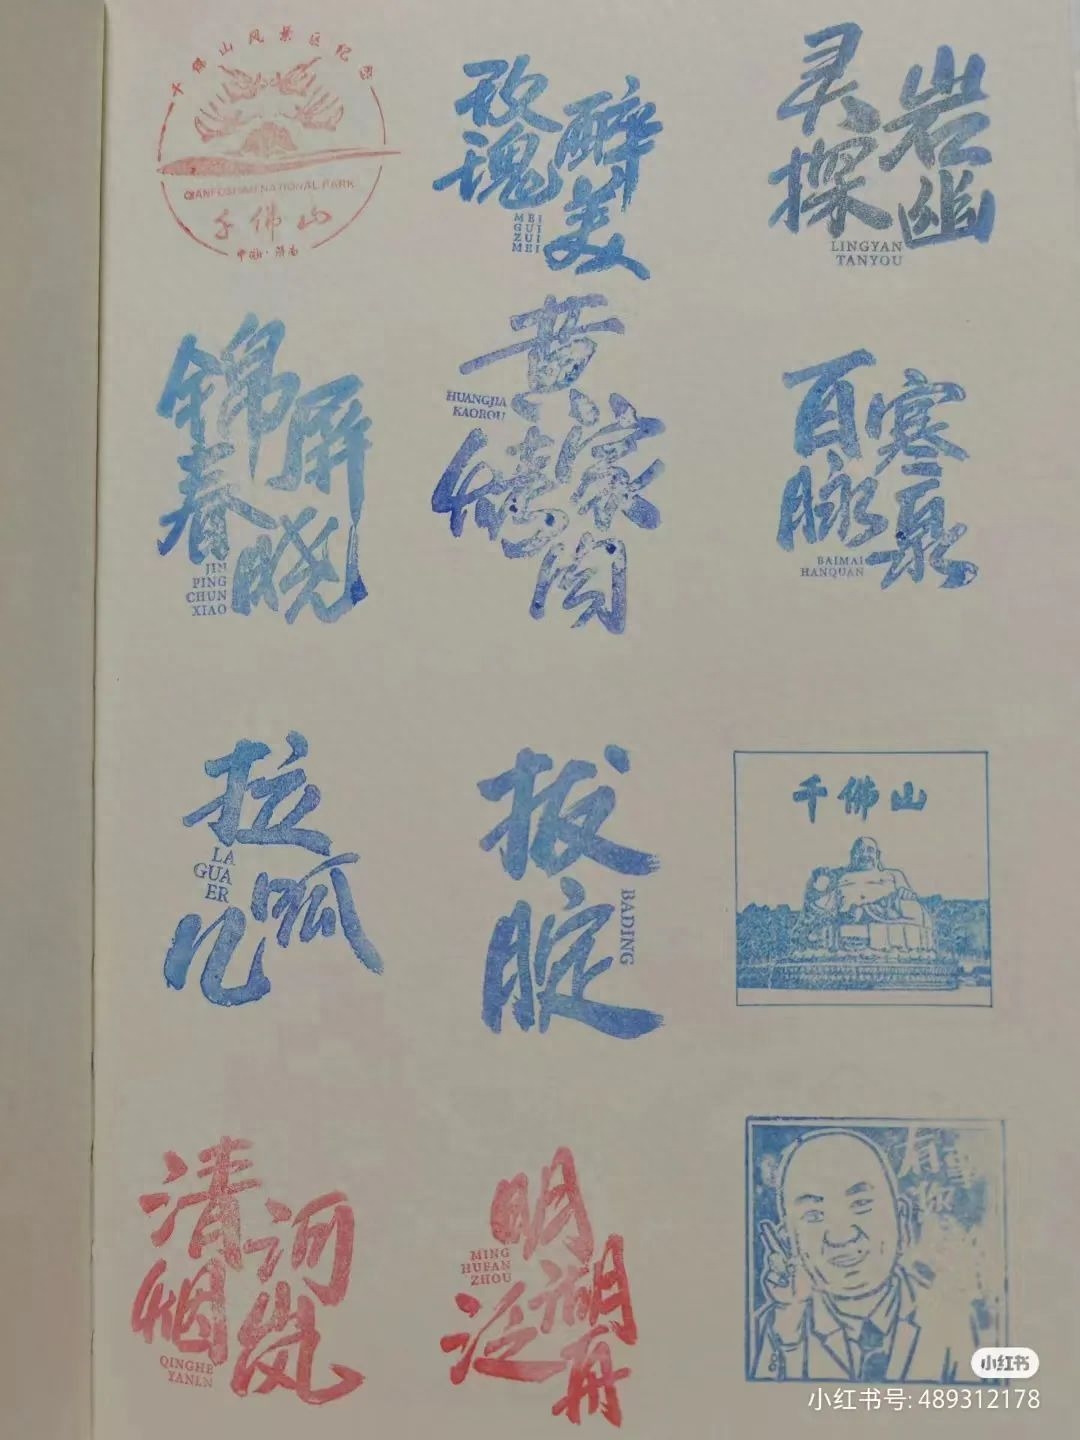 千佛山风景区纪念
QIANFOSHAN NATIONAL PARK
千佛山
中国·济南
玫瑰
醉美
MEI
GUI
ZUI
MEI
灵岩
探幽
LINGYAN
TANYOU
锦屏
春晓
JIN
PING
CHUN
XIAO
黄家
烤肉
HUANGJIA
KAOROU
百脉
寒泉
BAIMAI
HANQUAN
拉
呱
儿
LA
GUA
ER
扳
腚
BADING
千佛山
清河
烟岚
QINGHE
YANLN
明湖
泛舟
MING
HUFAN
ZHOU
有事
你
小红书
小红书号: 489312178